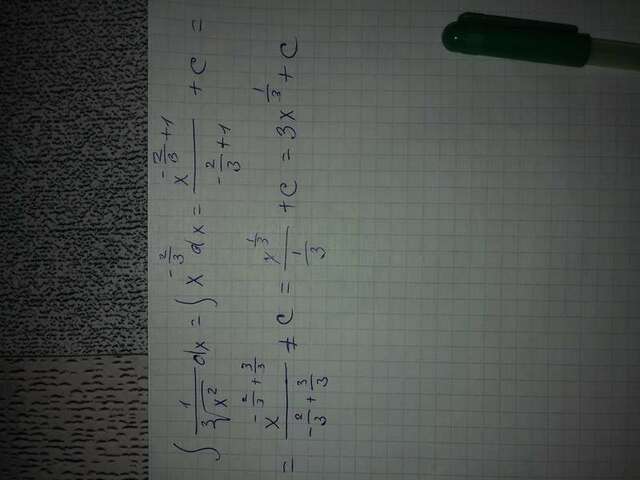 ∫ 1/∛(x²) dx = ∫ x^(-2/3) dx = x^(-2/3+1)/(-2/3+1) + C =
= x^(-2/3+3/3)/(-2/3+3/3) + C = x^(1/3)/(1/3) + C = 3x^(1/3) + C